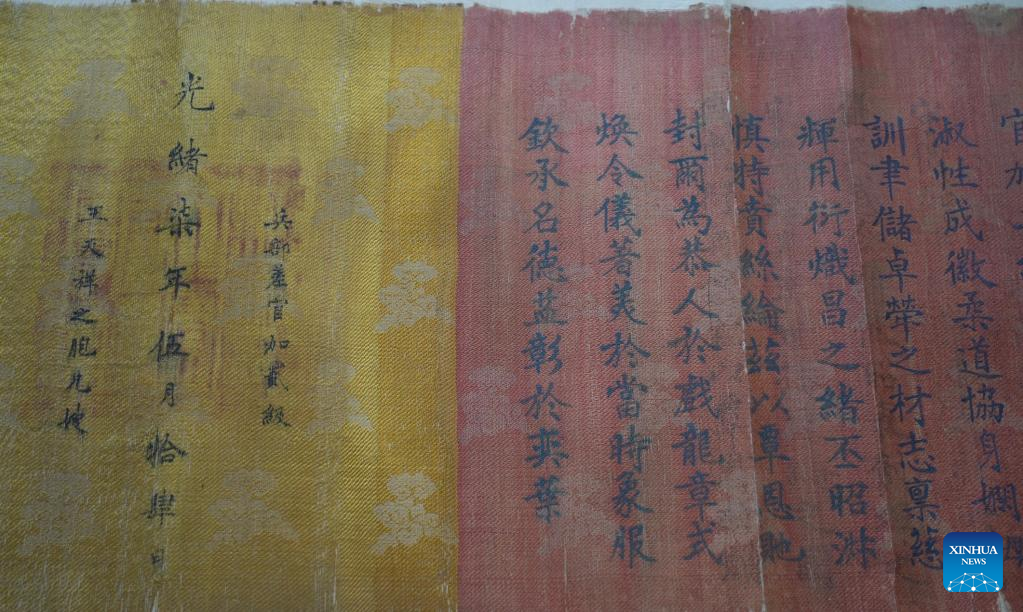 官加
淑性成徽柔道協身嫻
訓聿儲卓犖之材志稟慈
輝用衍熾昌之緒丕昭淑
慎持賁絲綸茲以覃恩貤
封爾為恭人於戲龍章式
煥令儀著美於當時象服
欽承名德益彰於奕葉
兵部差官加貳級
光緒柒年伍月拾肆日
王天祥之胞兄嫂
XINHUA
NEWS